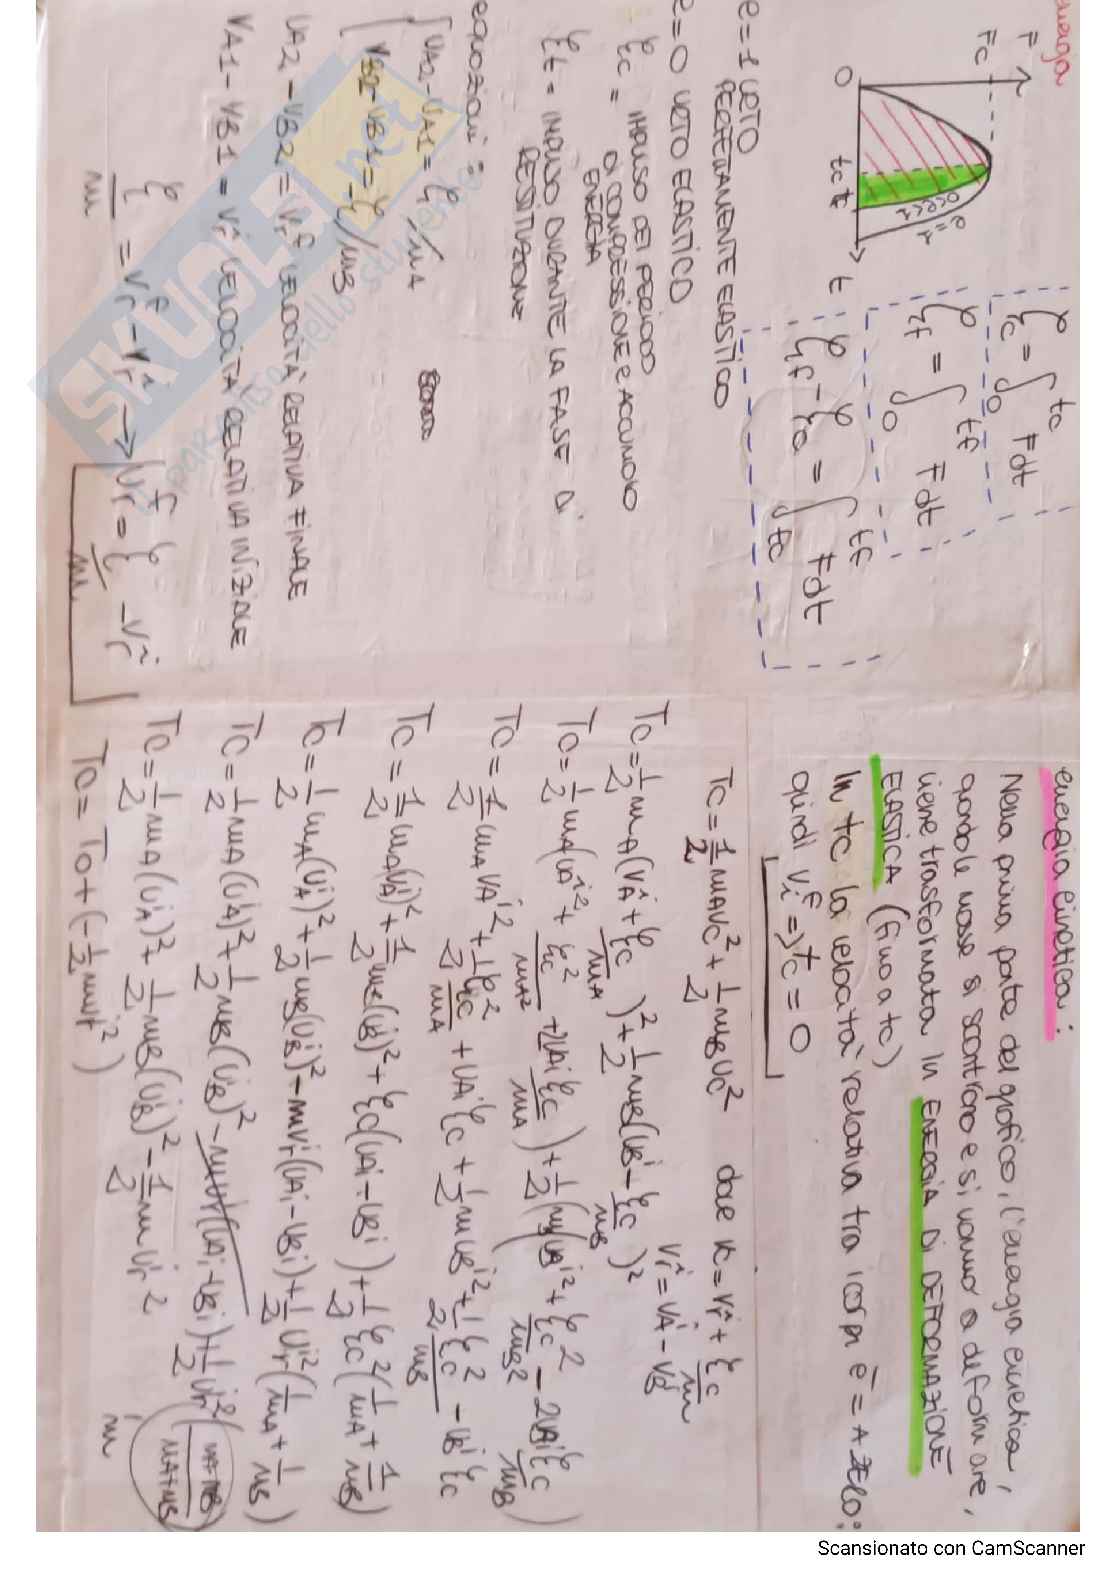 energia
F
Fc
0
tc
tf
t
e=1
0<e<1
ξc = ∫0^tc Fdt
ξf = ∫0^tf Fdt
ξf - ξc = ∫tc^tf Fdt
e=1 URTO
PERFETTAMENTE ELASTICO
e=0 URTO ELASTICO
ξc = IMPULSO DEL PERIODO
DI COMPRESSIONE E ACCUMULO
ENERGIA
ξt = IMPULSO DURANTE LA FASE DI
RESTITUZIONE
equazioni:
{ VA2 - VA1 = ξ/mA
VB2 - VB1 = -ξ/mB
VA2 - VB2 = Vr^f VELOCITÀ RELATIVA FINALE
VA1 - VB1 = Vr^i VELOCITÀ RELATIVA INIZIALE
ξ/m = Vr^f - Vr^i → Vr^f = ξ/m - Vr^i
energia cinetica:
Nella prima parte del grafico, l'energia cinetica,
quando le masse si scontrano e si vanno a deformare,
viene trasformata in ENERGIA DI DEFORMAZIONE
ELASTICA (fino a tc)
In tc la velocità relativa tra i corpi è = A ZERO:
quindi Vi^f => tc = 0
Tc = 1/2 mAVc² + 1/2 mBVc² dove Vc = Vr^i + ξc/m
Vr^i = VA^i - VB^i
Tc = 1/2 mA(VA^i + ξc/mA)² + 1/2 mB(VB^i - ξc/mB)²
Tc = 1/2 mA(VA^i² + ξc²/mA² + 2VAi ξc/mA) + 1/2 (mB(VB^i² + ξc²/mB² - 2VB^i ξc/mB)
Tc = 1/2 mAVA^i² + 1/2 ξc²/mA + VAi ξc + 1/2 mBVB^i² + 1/2 ξc²/mB - VB^i ξc
Tc = 1/2 mA(VA^i)² + 1/2 mB(VB^i)² + ξc(VAi - VBi) + 1/2 ξc²(1/mA + 1/mB)
Tc = 1/2 mA(VA^i)² + 1/2 mB(VB^i)² - mVr^i(VAi - VBi) + 1/2 Vr^i²(1/mA + 1/mB)
Tc = 1/2 mA(VA^i)² + 1/2 mB(VB^i)² - mVr^i(VAi - VBi) + 1/2 Vr^i²(mA+mB/mA+mB)
Tc = 1/2 mA(VA^i)² + 1/2 mB(VB^i)² - 1/2 mVr^i²
m
Tc = T0 + (-1/2 mVr^i²)
SKUOLA.net
Scansionato con CamScanner